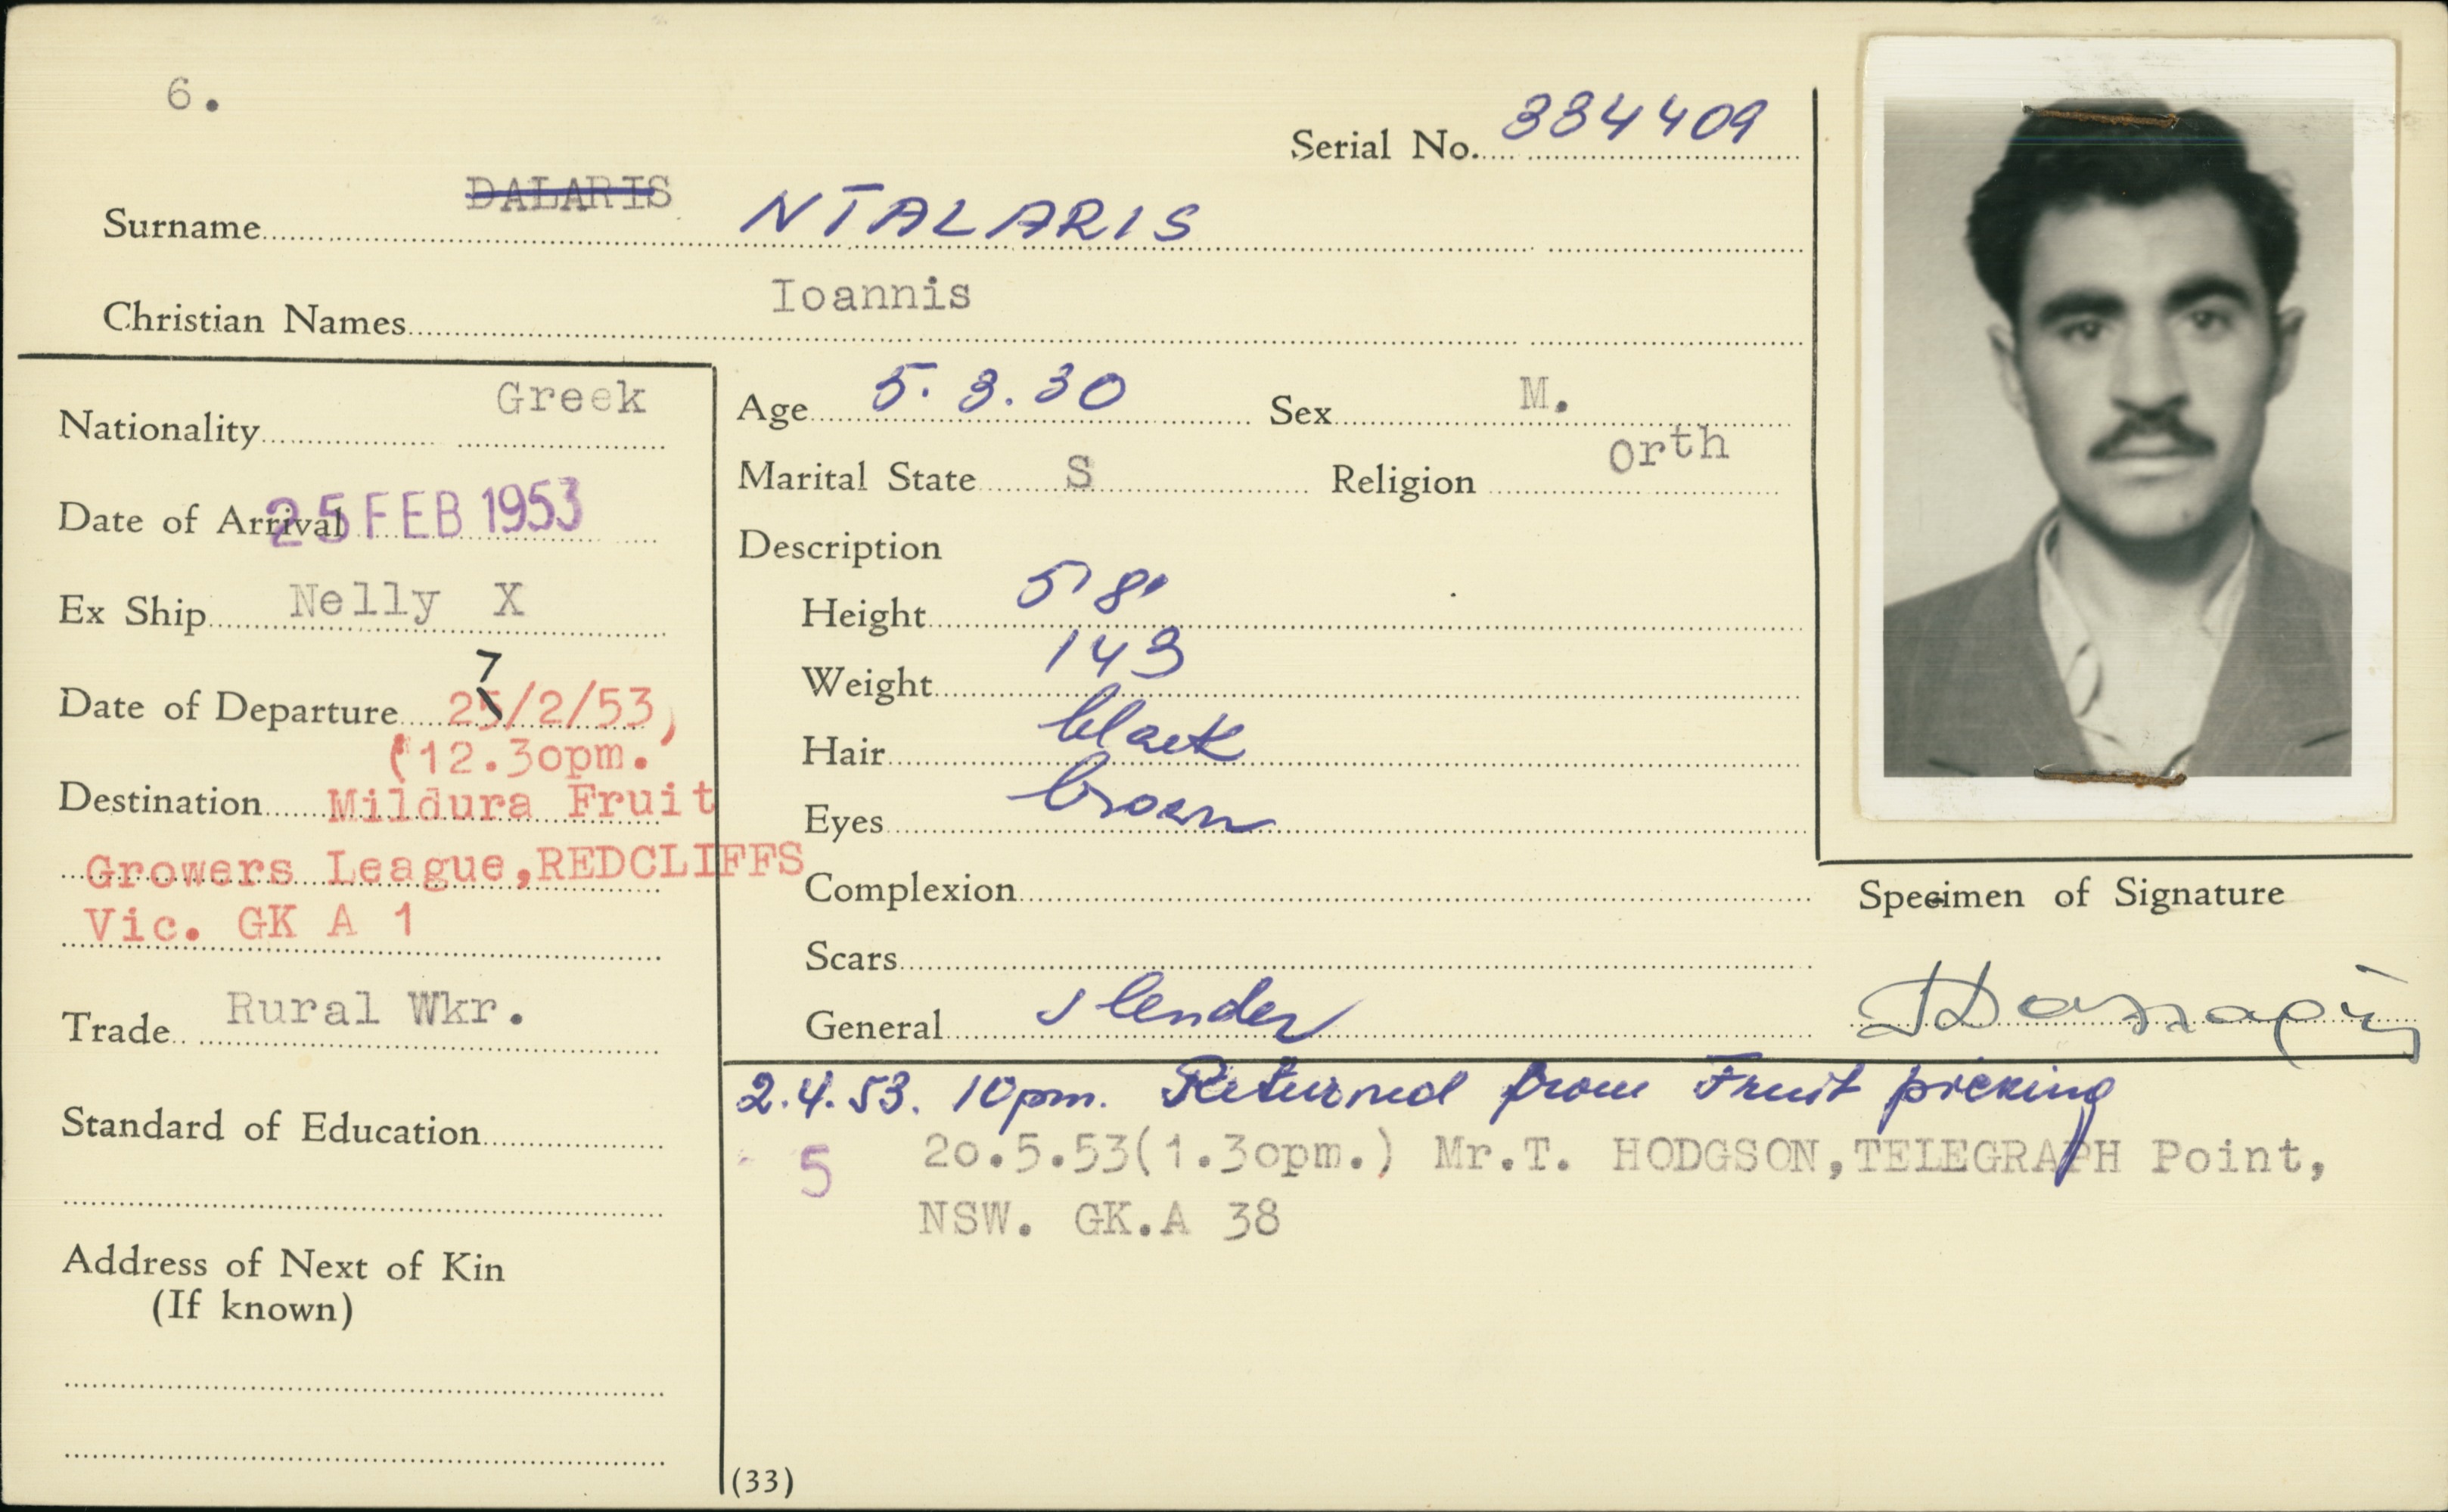 6.
Serial No. 334409
Surname DALARIS NTALARIS
Christian Names Ioannis
Nationality Greek
Date of Arrival 25 FEB 1953
Ex Ship Nelly X
7
Date of Departure 25/2/53
(12.30pm.)
Destination Mildura Fruit
Growers League, REDCLIFFS
Vic. GK A 1
Trade Rural Wkr.
Standard of Education
Address of Next of Kin
(If known)
Age 5.3.30 Sex M.
Marital State S Religion Orth
Description
Height 5'8"
Weight 143
Hair black
Eyes brown
Complexion
Scars
General slender
Specimen of Signature
2.4.53. 10pm. Returned from Fruit picking
5 20.5.53(1.30pm.) Mr.T. HODGSON, TELEGRAPH Point,
NSW. GK.A 38
(33)